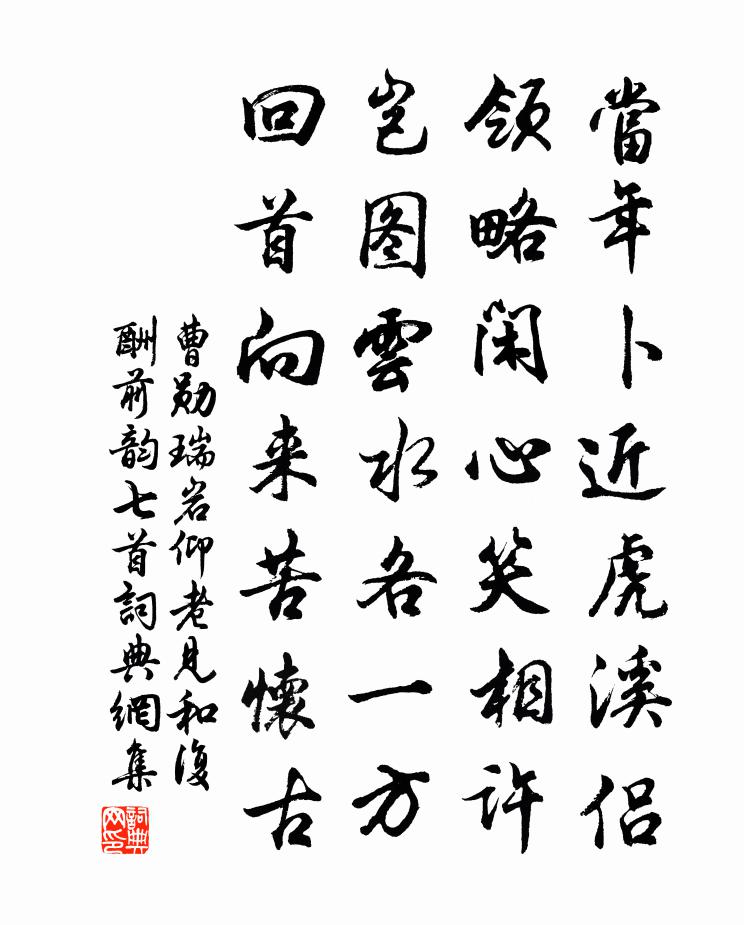 當年卜近虎溪侣
領略闲心笑相許
岂图雲水各一方
回首向来苦懷古
曹勛瑞岩仰老見和復
酬前韵七首詞典網集
詞典网印